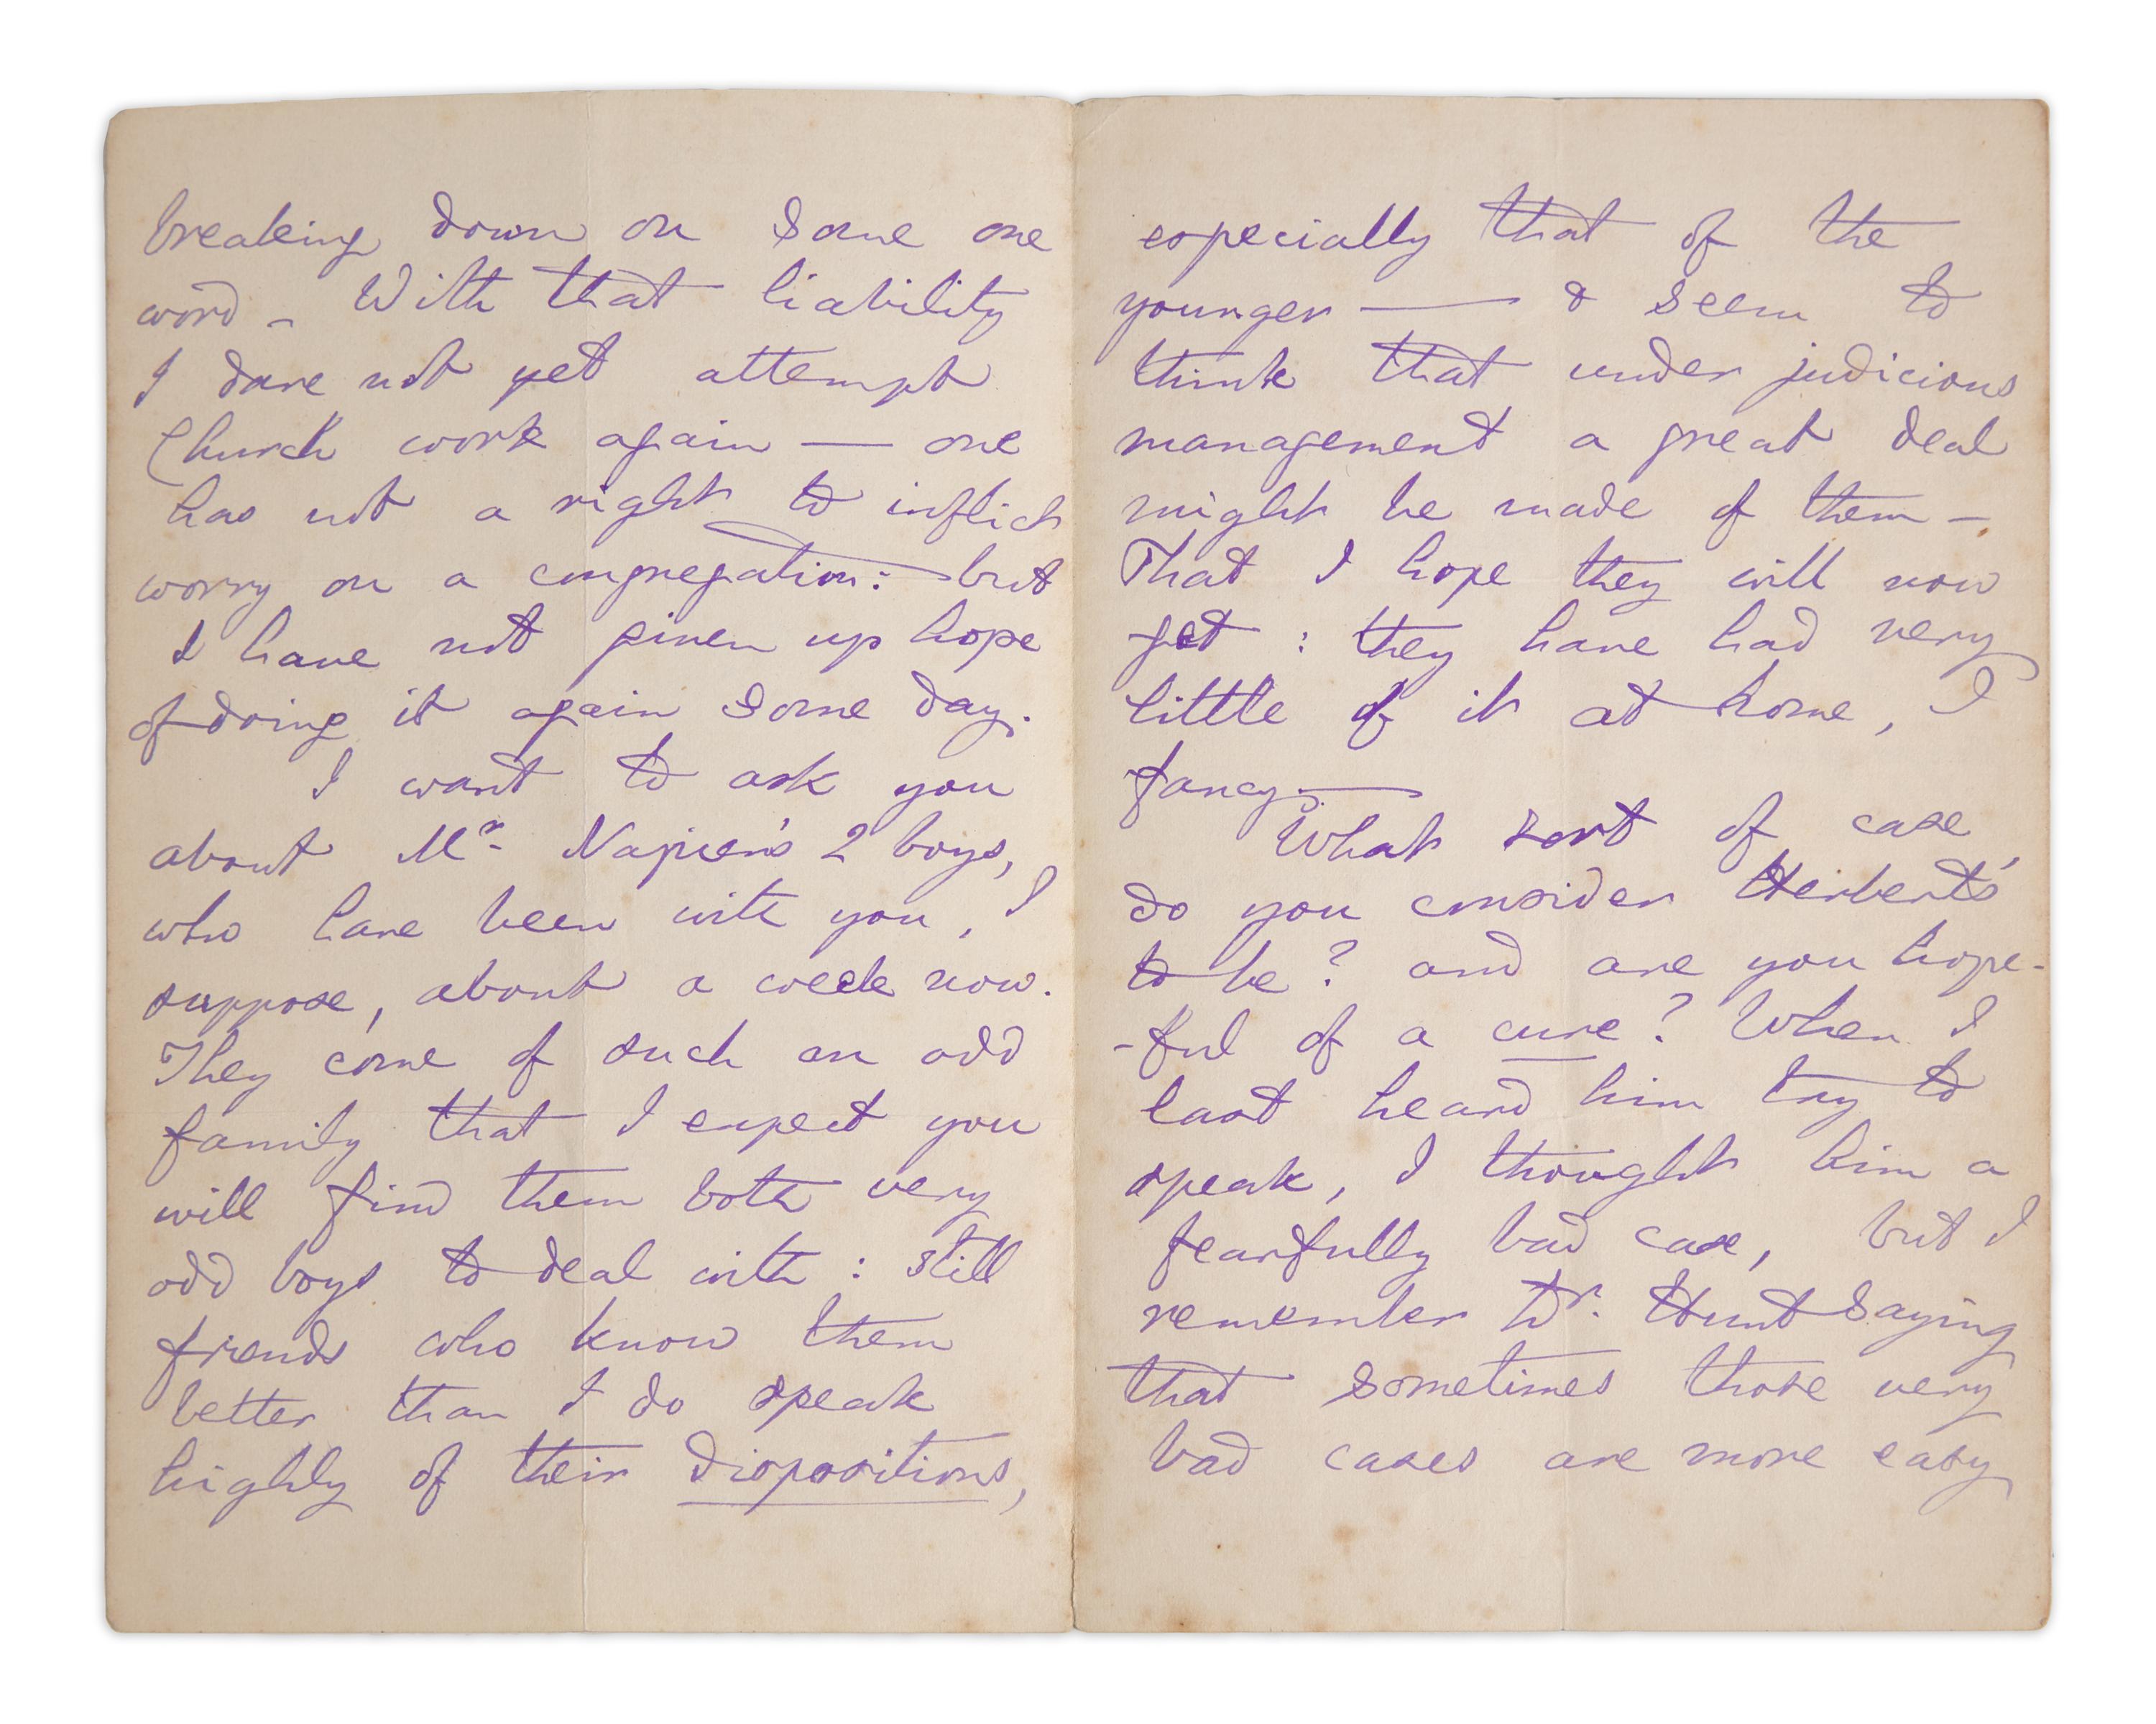 breaking down on some one
word – With that liability
I dare not yet attempt
Church work again — one
has not a right to inflict
worry on a congregation: but
I have not given up hope
of doing it again some day.
I want to ask you
about Mr. Napier's 2 boys,
who have been with you, I
suppose, about a week now.
They come of such an odd
family that I expect you
will find them both very
odd boys to deal with: still
friends who know them
better than I do speak
highly of their dispositions,
especially that of the
younger — & seem to
think that under judicious
management a great deal
might be made of them –
That I hope they will now
get: they have had very
little of it at home, I
fancy. —
What sort of case,
do you consider Herbert's
to be? and are you hope-
-ful of a cure? When I
last heard him try to
speak, I thought him a
fearfully bad case, but I
remember Dr. Hunt saying
that sometimes those very
bad cases are more easy